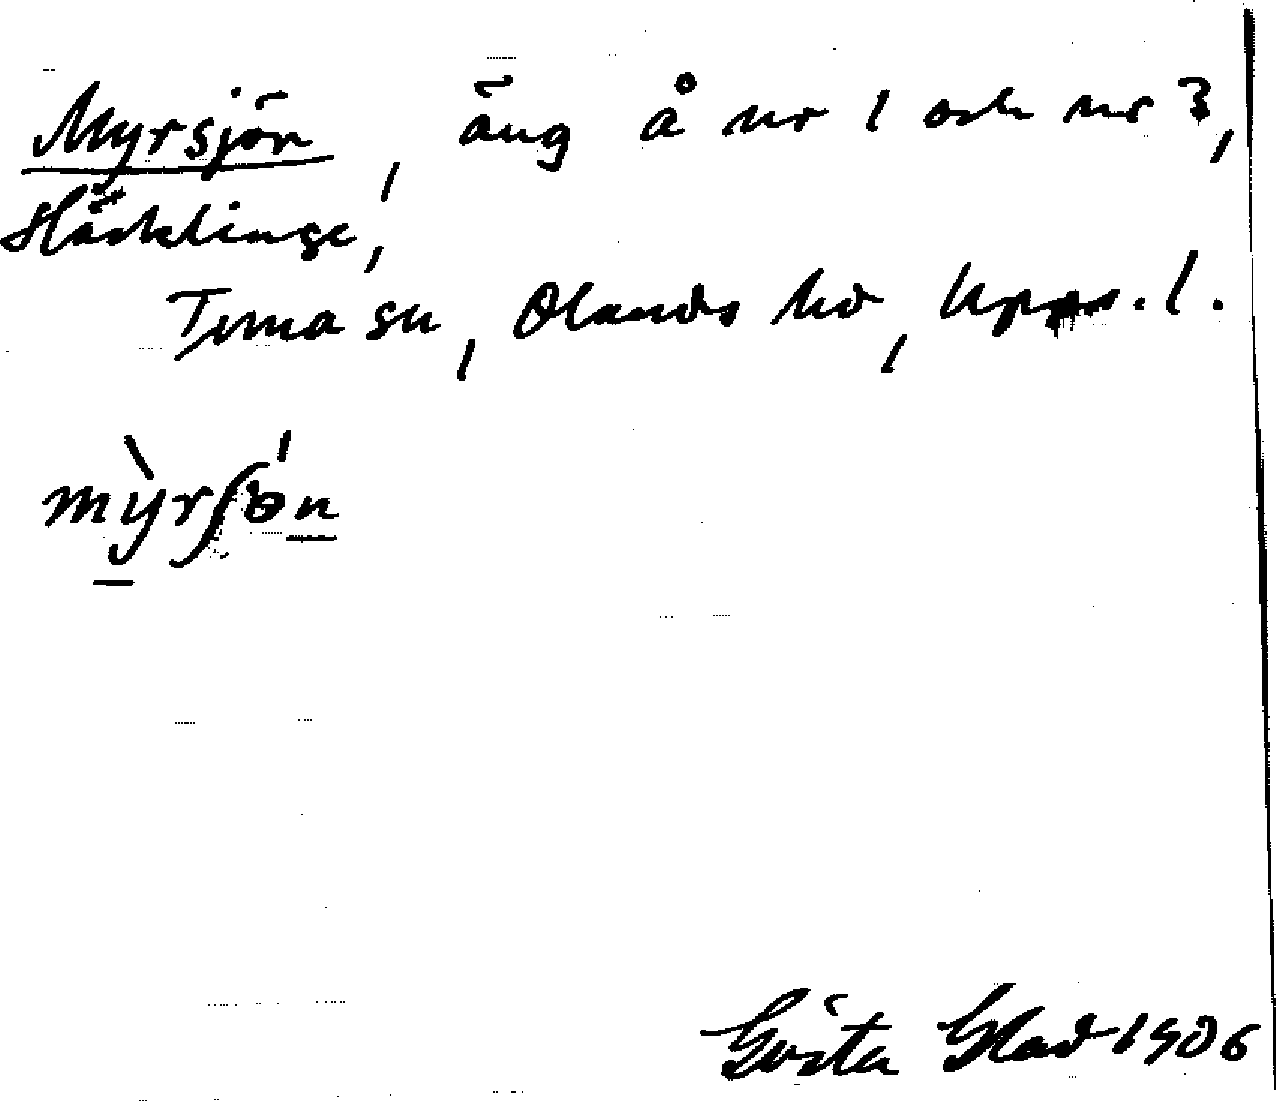 Myrsjön, äng å nr 1 och nr 3,
Häcklinge,
Tuna sn, Olands hd, Upps. l.
mỳrʃön
Gösta Glad 1906